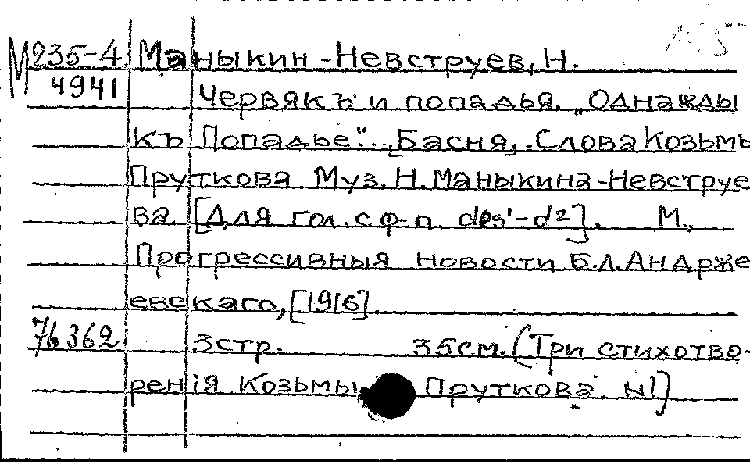 М235-4 Маныкин-Невструев, Н.
4941 Червякъ и попадья. „Однажды
къ Попадье". [Басня]. Слова Козьмы
Пруткова Муз. Н. Маныкина-Невструе
ва [Для гол. с ф-п. des¹-d²]. М.,
Прогрессивныя новости Б.Л. Андрже
евскаго, [1916].
76362 3стр. 35см. (Три стихотво-
ренія Козьмы Пруткова. №1)